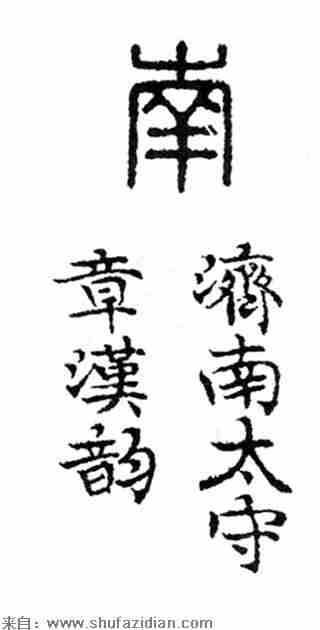 南
濟南太守
章漢韵
来自：www.shufazidian.com